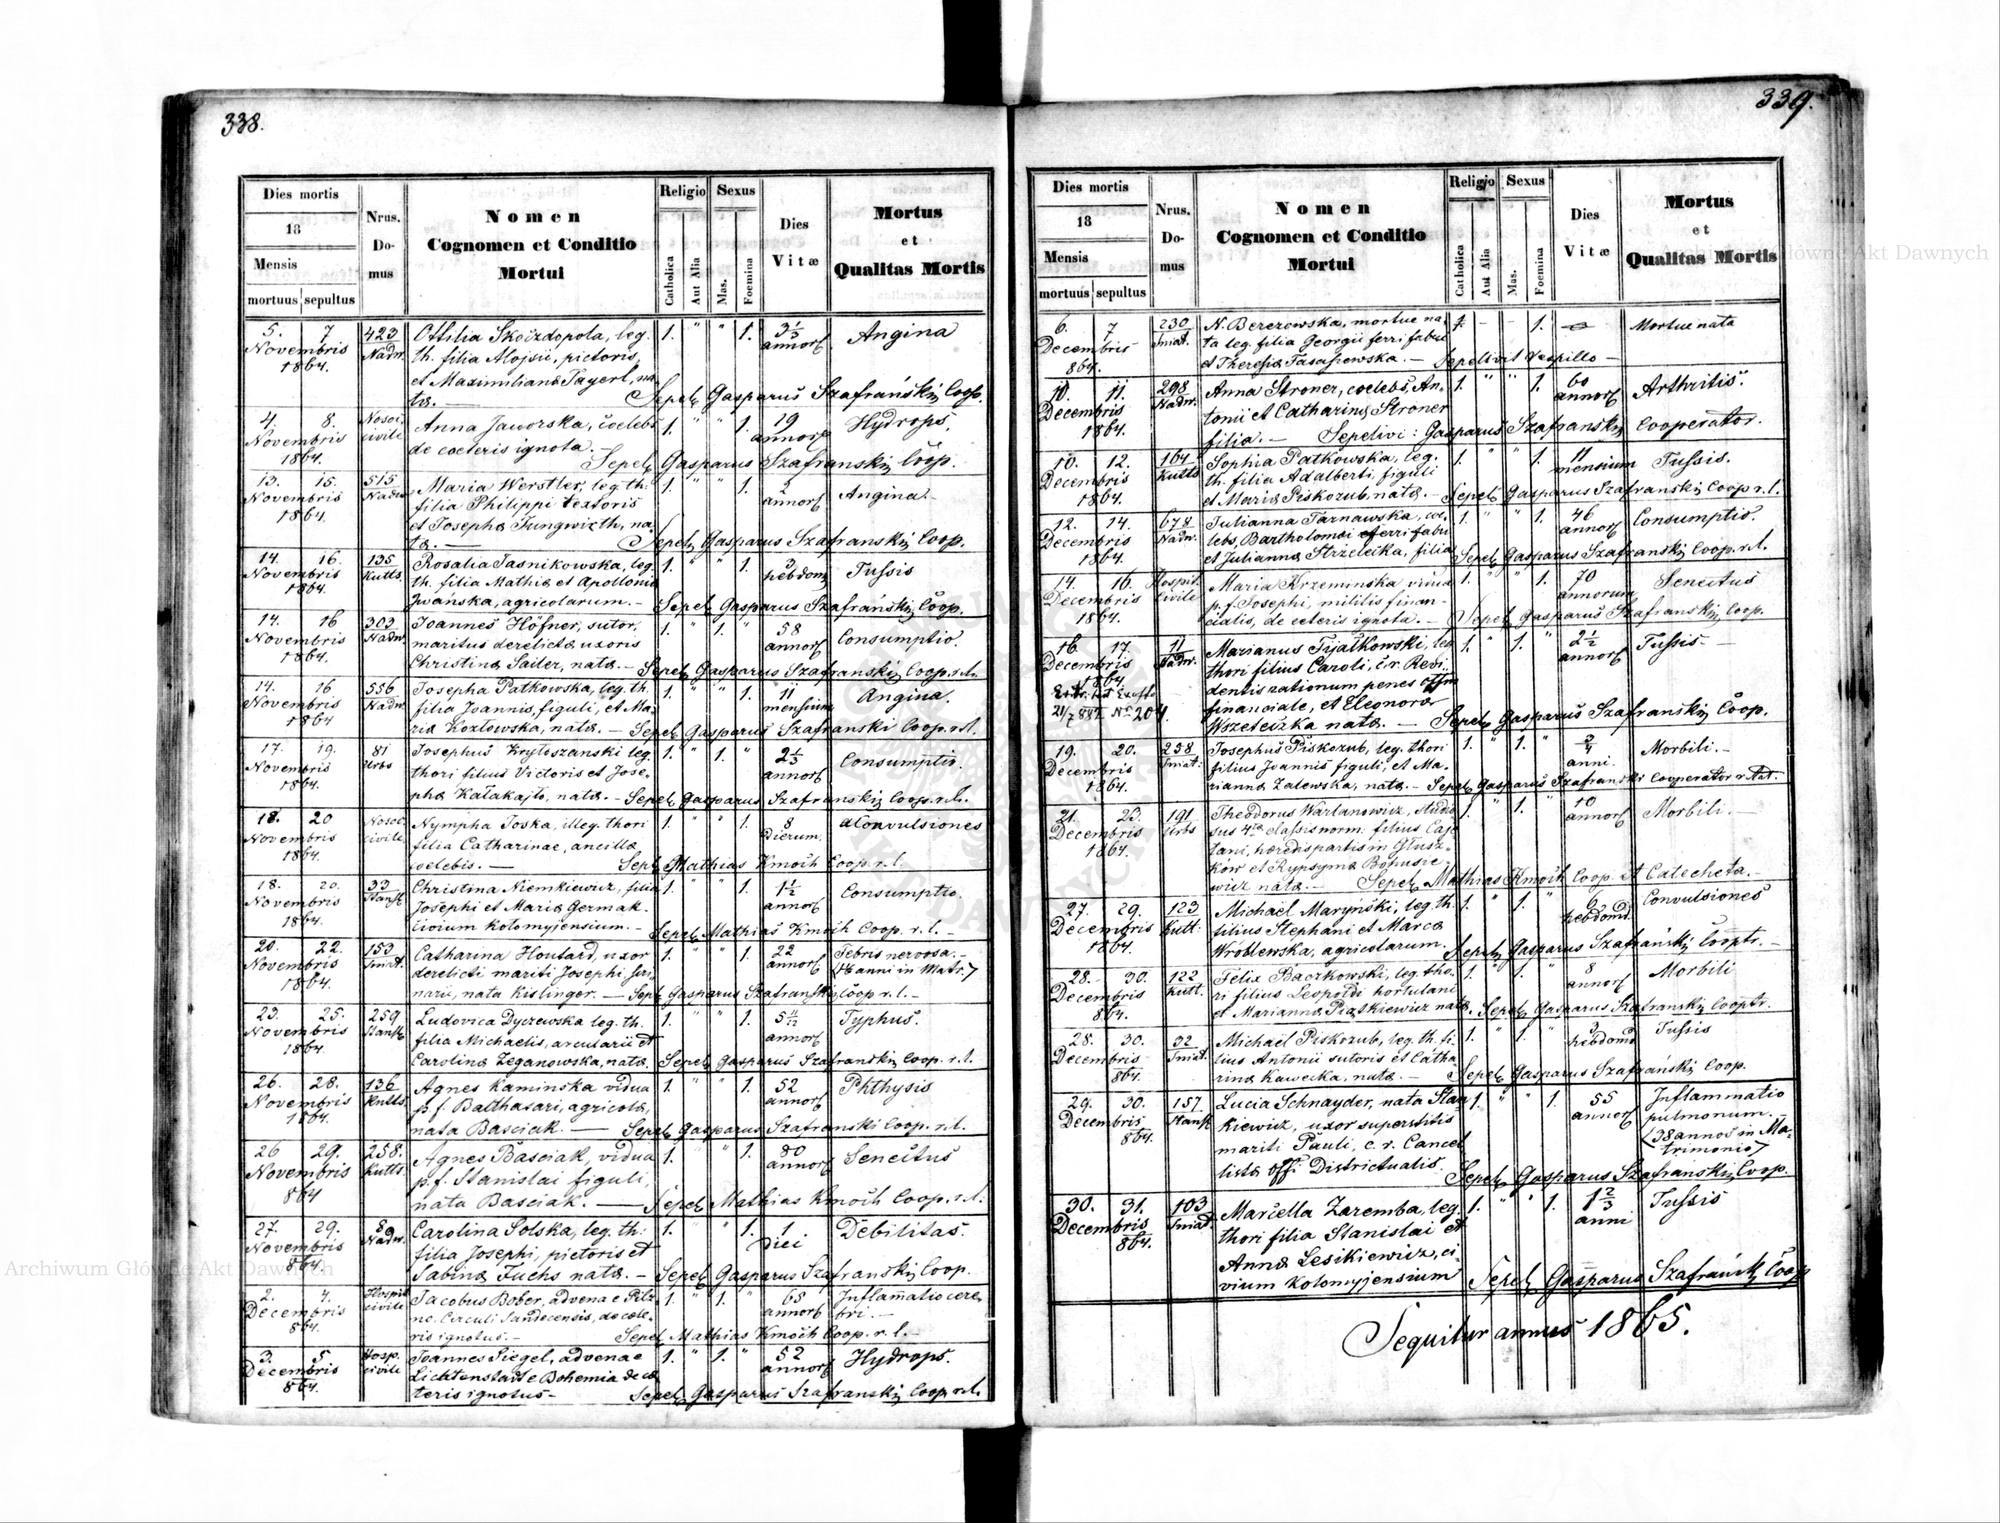 338.
Dies mortis
18
Mensis
mortuus sepultus
Nrus. Domus
Nomen
Cognomen et Conditio
Mortui
Religio
Catholica
Aut Alia
Sexus
Mas.
Foemina
Dies
Vitæ
Mortus
et
Qualitas Mortis
5. 7 423 Ottilia leg. 1. " " 1. 3 1/3 Angina
Novembris Nadw. th. filia Alojsii, pictoris, annor
1864 et Maximiliana Tayerl, na-
ta. — Sepel. Gasparus Szafrański Coop.
4. 8. Nosoc. Anna Jaworska, coelebs 1. " 1. 19 Hydrops.
Novembris civile de coeteris ignota. — annor
1864. Sepel. Gasparus Szafranski Coop.
13. 15. 515 Maria Werstler, leg. th. 1. " " 1. Angina
Novembris Nadw. filia Philippi textoris annor
1864. et Josepha Jungwirth, na-
ta. — Sepel. Gasparus Szafranski Coop.
14. 16. 135 Rosalia Jasnikowska, leg. 1. " " 1. Tussis
Novembris Kutts. th. filia Mathia et Apollonia hebdom
1864. Iwańska, agricolarum. — Sepel. Gasparus Szafrański Coop.
14. 16 303 Joannes Höfner, sutor, 1. " 1. " 58 Consumptio.
Novembris Nadw. maritus derelicta uxoris annor
1864. Christina Sailer, nata. — Sepel. Gasparus Szafranski Coop. r.l.
14. 16 556 Josepha Patkowska, leg. th. 1. " " 1. 11 Angina.
Novembris Nadw. filia Joannis, figuli, et Ma- mensium
1864 ria Kozłowska, nata. — Sepel. Gasparus Szafranski Coop. r.l.
17. 19. 81 Josephus Krytoszanski leg. 1. " 1. " 2 1/3 Consumptio.
Novembris Urbs thori filius Victoris et Jose- annor
1864. pha Kałakajło, nata. — Sepel. Gasparus Szafranski Coop. r.l.
18. 20 Nosoc. Nympha Toska, illeg. thori 1. " " 1. 8 Convulsiones
Novembris civile filia Catharinae, ancilla dierum.
1864. coelebis. — Sepel. Mathias Kmoih Coop. r.l.
18. 20. 33 Christina Niemkiewicz, filia 1. " " 1. 1 1/2 Consumptio.
Novembris Stank Josephi et Maria Germak. annor
1864. civium Kolomyjensium. — Sepel. Mathias Kmoih Coop. r.l. —
20. 22. 153 Catharina Houtard, uxor 1. " " 1. 22 Febris nervosa. —
Novembris Sniat. derelicti mariti Josephi, annor (1/6 anni in Matr.)
1864. nata Kislinger. — Sepel. Gasparus Szafranski Coop r.l. —
23. 25. 259 Ludovica Dyczewska leg. th. 1. " " 1. 5 11/12 Typhus.
Novembris Stank filia Michaelis, arcularii et annor
1864. Carolina Zeganowska, nata. Sepel. Gasparus Szafranski Coop. r.l.
26. 28. 136 Agnes Kaminska vidua 1. " " 1. 52 Phthysis
Novembris Kutts. p. f. Balthasari, agricola, annor
1864. nata Basciak. — Sepel. Gasparus Szafranski Coop. r.l.
26 29. 258. Agnes Basciak, vidua 1. " " 1. 80 Senectus
Novembris Kutts. p. f. Stanislai figuli, annor
864 nata Basciak. — Sepel. Mathias Kmoih Coop. r.l.
27. 29. 8 Carolina Solska, leg. th. 1. " " 1. 1 Debilitas.
Novembris Nadw. filia Josephi, pictoris et diei
864. Sabina Fuchs nata. — Sepel. Gasparus Szafranski Coop.
2. 4. Hospit. Jacobus Bober, advena e 1. " 1. " 65 Inflamatio cere-
Decembris civile Circuli Sandecensis, de coete- annor bri. —
864. ris ignotus. — Sepel. Mathias Kmoih Coop. r.l. —
3. 5 Hosp. Joannes Siegel, advena e 1. " 1. " 52 Hydrops.
Decembris civile Lichtenstadt e Bohemia de coe- annor
864. teris ignotus — Sepel. Gasparus Szafranski Coop. r.l.
339.
Dies mortis
18
Mensis
mortuus sepultus
Nrus. Domus
Nomen
Cognomen et Conditio
Mortui
Religio
Catholica
Aut Alia
Sexus
Mas.
Foemina
Dies
Vitæ
Mortus
et
Qualitas Mortis
6. 7 230 N. Berezowska, mortue na- 1. - - 1. Mortue nata
Decembris Sniat. ta leg. filia Georgii ferri fabri
864. et Theresia — Sepelivit Vespillo —
10. 11. 298 Anna Stroner, coelebs, An- 1. " " 1. 60 Arthritis.
Decembris Nadw. tonii et Catharina Stroner annor
1864. filia. — Sepelivi: Gasparus Szafranski Cooperator.
10. 12. 164 Sophia Patkowska, leg. 1. " " 1. 11 Tussis.
Decembris Kutts th. filia Adalberti, figuli mensium
1864. et Maria Piskozub, nata. — Sepel. Gasparus Szafranski Coop r.l.
12. 14. 678 Julianna Tarnawska, coe- 1. " " 1. 46 Consumptio.
Decembris Nadw. lebs, Bartholomai ferri fabri annor
1864. et Julianna Strzelecka, filia Sepel. Gasparus Szafranski Coop. r.l.
14. 16. Hospit. Maria Krzeminska vidua 1. " 1. 70 Senectus
Decembris Civile p. f. Josephi, militis finan- annorum
1864. cialis, de ceteris ignota. — Sepel. Gasparus Szafranski Coop.
16. 17. 11 Marianus Fijałkowski, leg. 1. " 1. " 2 1/2 Tussis —
Decembris Nadw. thori filius Caroli, c.r. Revi- annor
1864. dentis rationum penes
21/7 887 Nr 204. financiale, et Eleonora
Wszeteczka nata. — Sepel. Gasparus Szafranski Coop.
19. 20. 258 Josephus Piskozub, leg. thori 1. " 1. " Morbili. —
Decembris Sniat. filius Joannis figuli, et Ma- anni.
1864. rianna Zalewska, nata. — Sepel. Gasparus Szafranski Cooperator
21. 23. 191 Theodorus Wartanowicz, studio- 1. " 1. " 10 Morbili. —
Decembris Urbs sus 4ta classis norm. filius Caje- annor
1864. tani, haeredis partis in Głusz-
ków et Rypsyma Bohusie-
wicz nata. — Sepel. Mathias Kmoih Coop. et Catecheta.
27. 29. 123 Michael Maryński, leg. th. 1. " 1. " 6 Convulsiones
Decembris Kutt. filius Stephani et Maria hebdomd.
1864. Wróblewska, agricolarum. Sepel. Gasparus Szafrański Cooptr. —
28. 30. 122 Felix Baczkowski, leg. tho- 1. " 1. " 8 Morbili
Decembris Kutt. ri filius Leopoldi hortulani annor
864. et Marianna Piątkiewicz nata. Sepel. Gasparus Szafranski Cooptr.
28. 30. 32 Michael Piskozub, leg. th. fi- 1. " 1. " 3 Tussis
Decembris Sniat. lius Antonii sutoris et Catha- hebdomd
864. rina Kawecka, nata. — Sepel. Gasparus Szafrański Coop.
29. 30. 157 Lucia Schnayder, nata Stan- 1. " " 1. 55 Inflammatio
Decembris Stank kiewicz, uxor superstitis annor pulmonum.
864. mariti Pauli, c. r. Cancel- (38 annos in Ma-
lista offi Districtualis. trimonio)
Sepel. Gasparus Szafranski Coop.
30. 31. 103 Marcella Zaremba, leg. 1. " " 1. 1 2/3 Tussis
Decembris Sniat. thori filia Stanislai et anni
864. Anna Lesikiewicz, ci-
vium Kolomyjensium Sepel. Gasparus Szafrański Coop
Sequitur annus 1865.
Archiwum Główne Akt Dawnych
Archiwum Główne Akt Dawnych